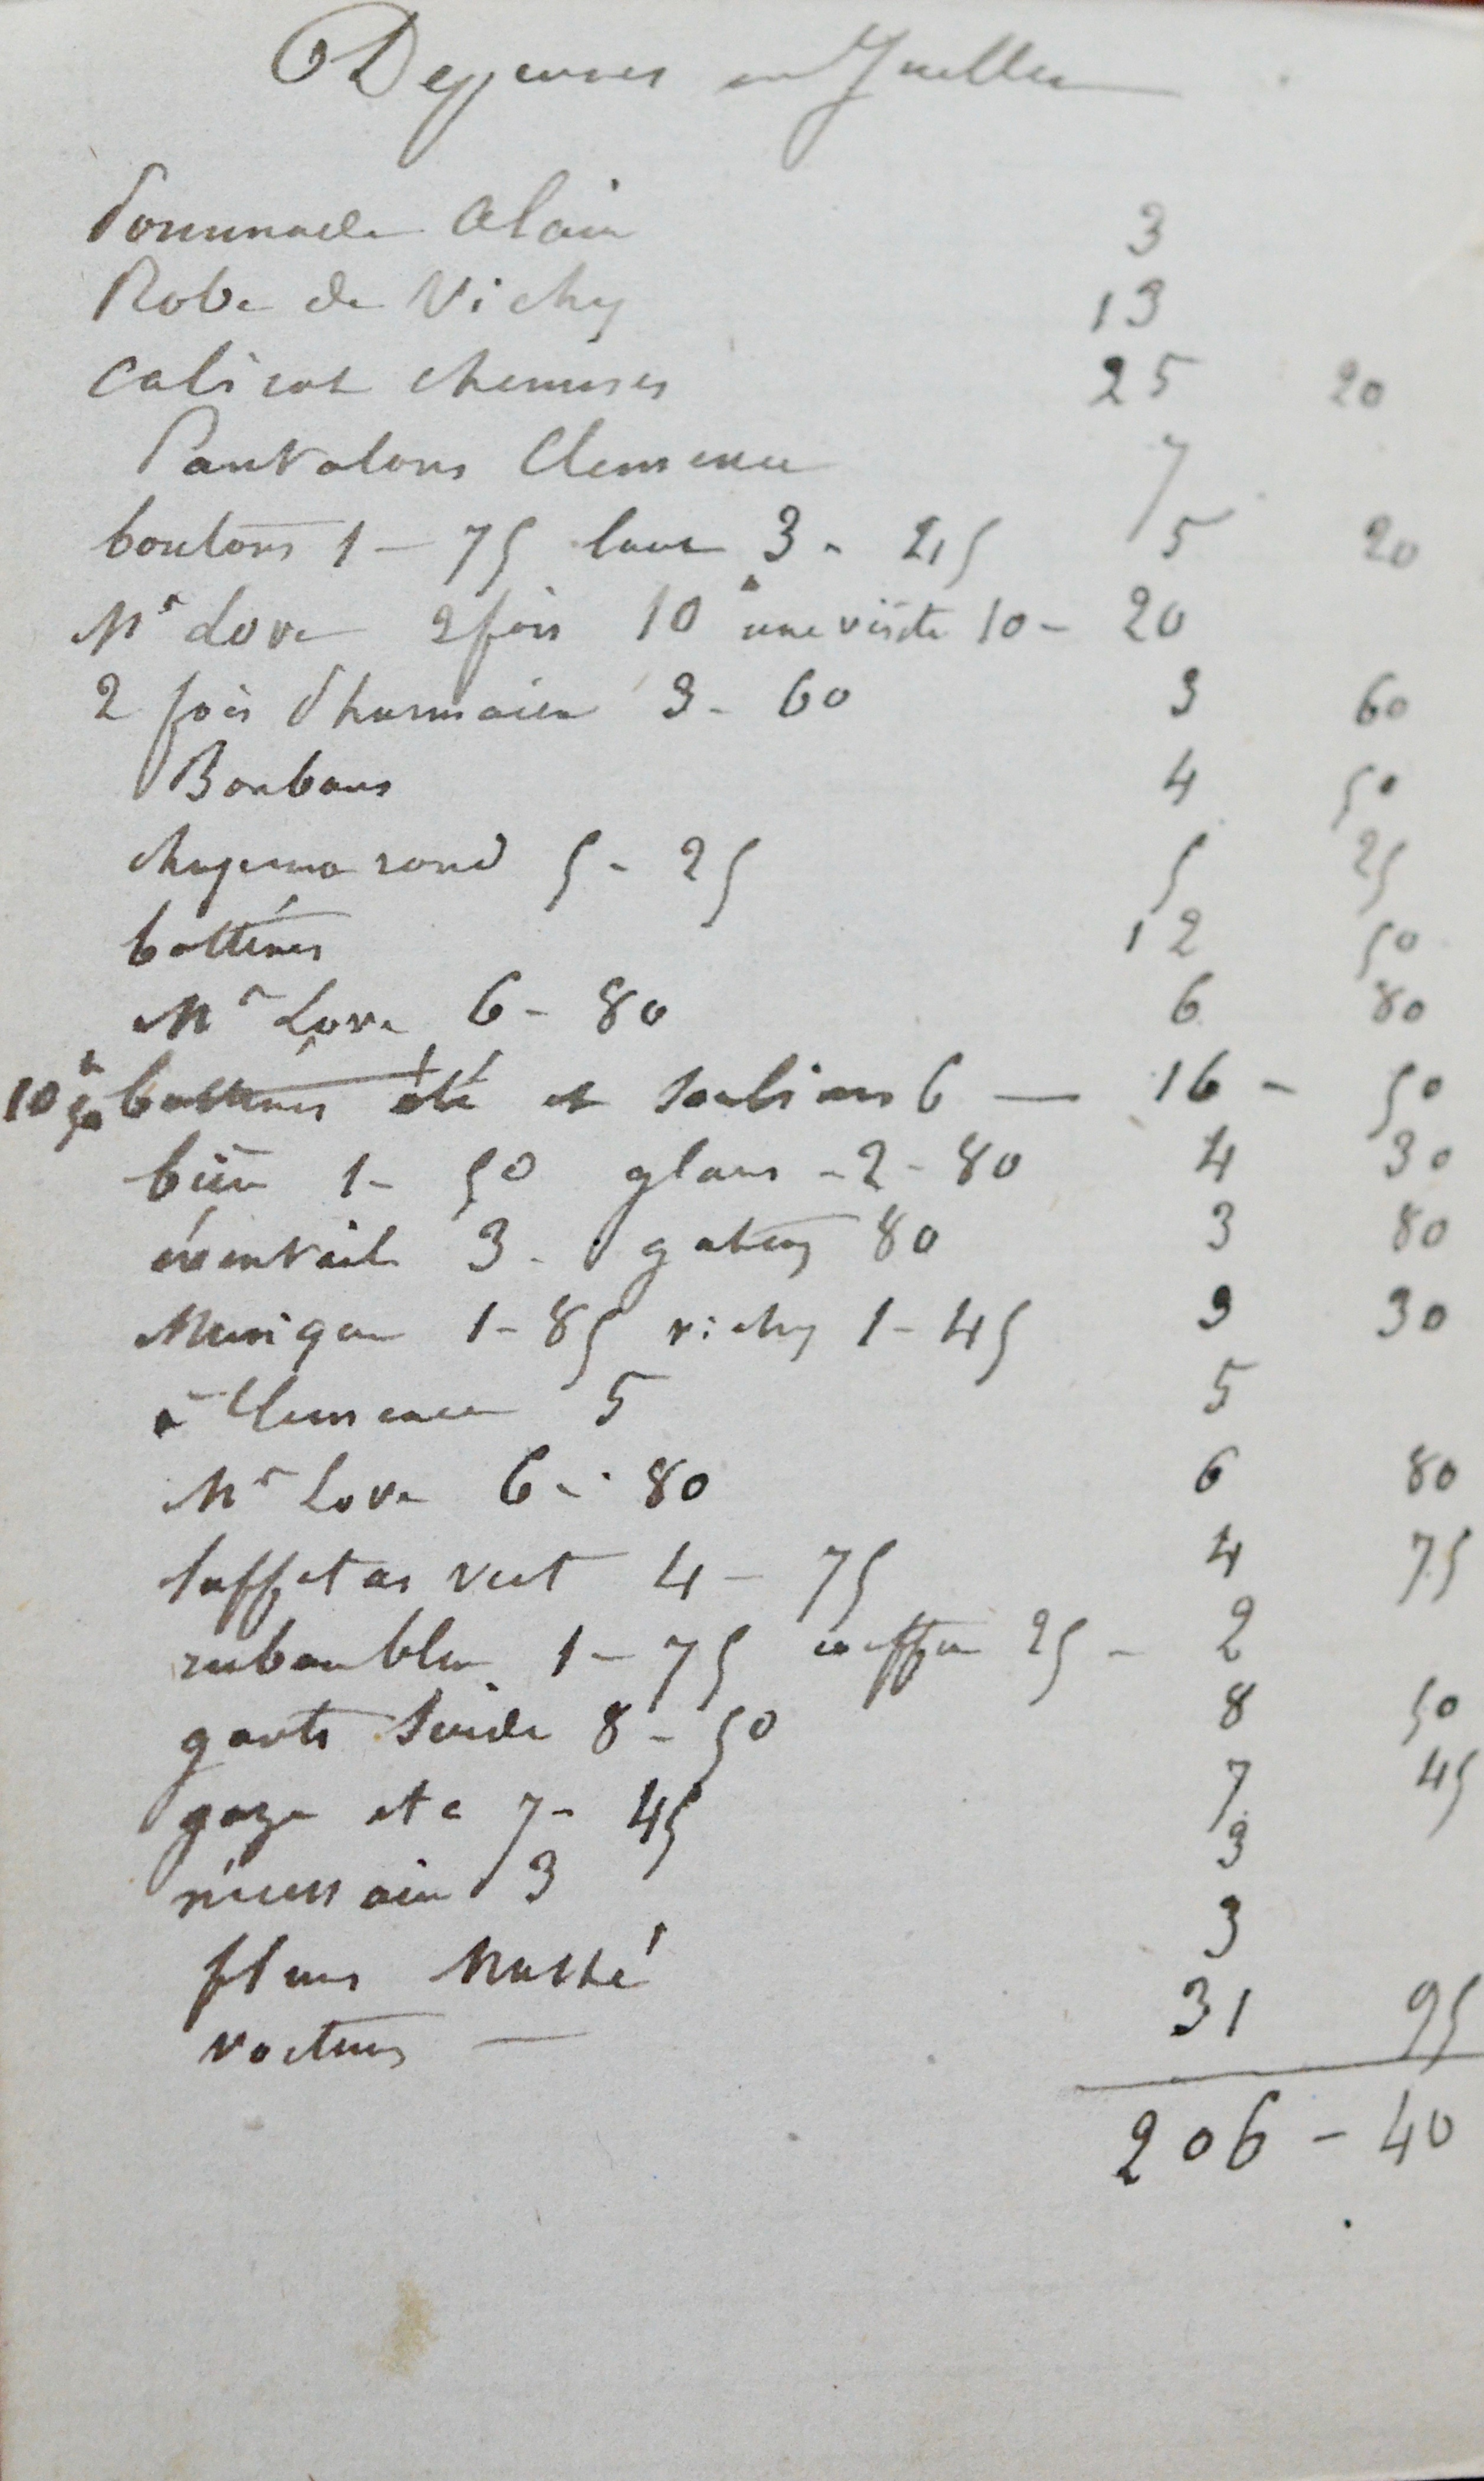 Depenses en Juillet
Pommade Alain 3
Robe de Vichy 13
Calicot chemises 25 20
Pantalons Clemence 7
boutons 1 - 75 3 - 25 5 20
Mr Love 2 fois 10 une visite 10 - 20
2 fois Pharmacie 3 - 60 3 60
Bonbons 4 50
rond 5 - 25 5 25
bottines 12 50
Mr Love 6 - 80 6 80
10 f 50 bottines été et souliers 6 — 16 - 50
bière 1 - 50 glaces - 2 - 80 4 30
éventail 3 - gateaux 80 3 80
Musique 1 - 85 vichy 1 - 45 3 30
à Clemence 5 5
Mr Love 6 - 80 6 80
taffetas vert 4 - 75 4 75
ruban bleu 1 - 75 coiffe 25 - 2
gants Suède 8 - 50 8 50
gaze etc 7 - 45 7 45
nécessaire 3 3
fleurs 3
voitures — 31 95
206 - 40